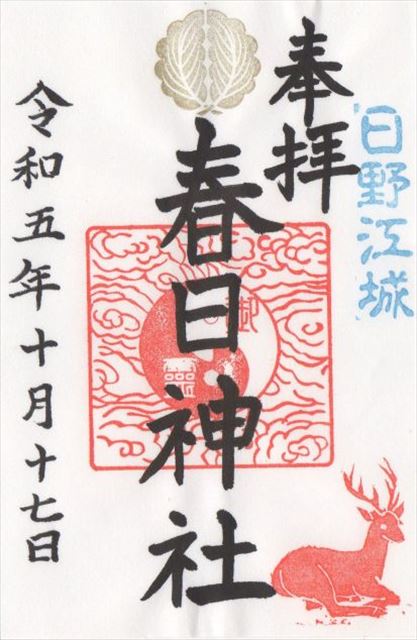 奉拝
日野江城
春日神社
御
霊
令和五年十月十七日